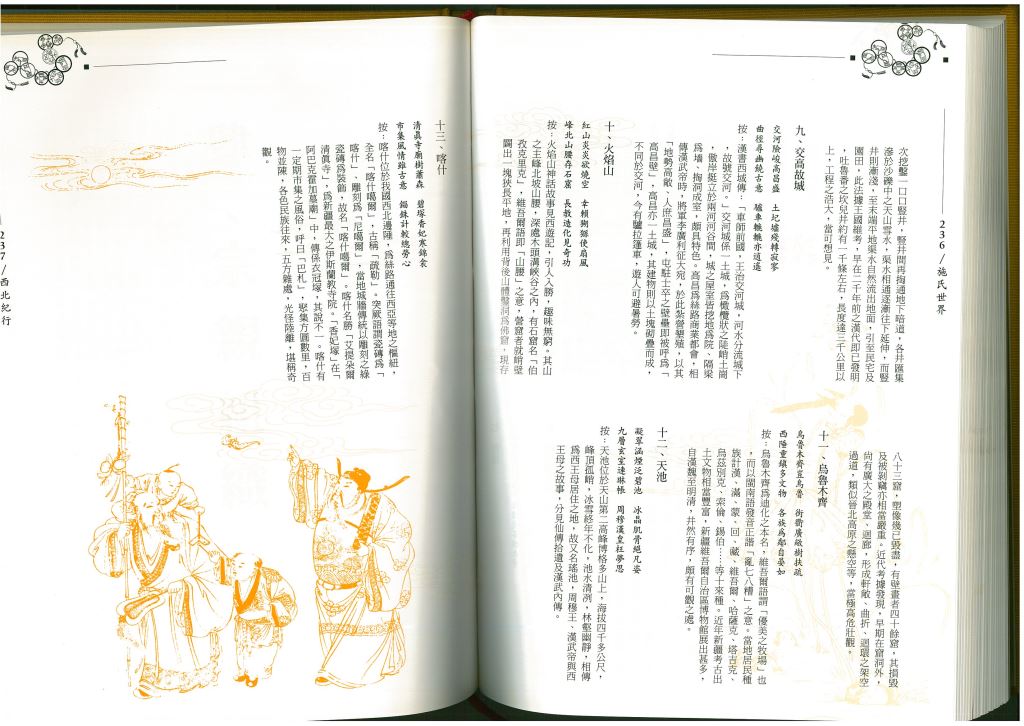 236/施氏世界
次挖鑿一口口豎井，豎井間再掏通地下暗道，各井匯集
滲於沙礫中之天山雪水，渠水相通逐漸往下延伸，而豎
井則漸淺，至末端平地渠水自然流出地面，引至民宅及
園田，此法據王國維考，早在二千年前之漢代即已發明
，吐魯番之坎兒井約有一千條左右，長度達三千公里以
上，工程之浩大，當可想見。
九、交高故城
交河險峻高昌盛　土圮墟殘轉寂寥
曲徑尋幽繞古意　驢車軟軟亦逍遙
按：漢書西域傳：「車師前國，王治交河城，河水分流城下
，故號交河。」交河城係一土城，為橄欖狀之陡峭土崗
，傲岸挺立於兩河河谷間，城之屋室皆挖地為院、隔梁
為墻、掏洞成室，頗具特色。高昌為絲路商業都會，相
傳漢武帝時，將軍李廣利征大宛，於此紮營墾殖，以其
「地勢高敞、人庶昌盛」，屯駐士卒之壁壘即被呼為「
高昌壁」，高昌亦一土城，其建物則以土塊砌疊而成，
不同於交河，今有驢拉篷車，遊人可避暑勞。
十、火焰山
紅山炎炎欲燒空　幸賴猢猻使扇風
峰北山腰存石窟　長教造化見奇功
按：火焰山神話故事見西遊記，引人入勝，趣味無窮。其山
之主峰北坡山腰，深處木頭溝峽谷之內，有石窟名「伯
孜克里克」，維吾爾語即「山腰」之意，營窟者就峭壁
闢出一塊狹長平地，再利用背後山體鑿洞為佛窟，現存
八十三窟，塑像幾已毀盡，有壁畫者四十餘窟，其損毀
及被剝竊亦相當嚴重。近代考據發現，早期在窟洞外，
尚有廣大之殿堂、迴廊，形成軒敞、曲折、迴環之架空
過道，類似晉北高原之懸空寺，當極高危壯觀。
十一、烏魯木齊
烏魯木齊直烏魯　街衢廣敞樹扶疏
西陲重鎮多文物　各族為鄰自晏如
按：烏魯木齊為迪化之本名，維吾爾語謂「優美之牧場」也
，而以閩南語發音正諧「亂七八糟」之意。當地居民種
族計漢、滿、蒙、回、藏、維吾爾、哈薩克、塔吉克、
烏茲別克、索倫、錫伯……等十來種。近年新疆考古出
土文物相當豐富，新疆維吾爾自治區博物館展出甚多，
自漢魏至明清，井然有序，頗有可觀之處。
十二、天池
凝翠涵煙泛碧池　冰晶肌骨絕凡姿
九層玄室連琳帳　周穆漢皇枉夢思
按：天池位於天山第二高峰博格多山上，海拔四千多公尺，
峰頂孤峭，冰雪終年不化，池水清冽，林壑幽靜，相傳
為西王母居住之地，故又名瑤池，周穆王、漢武帝與西
王母之故事，分見仙傳拾遺及漢武內傳。
十三、喀什
清真寺廟樹蕭森　碧塚香妃寒錦衾
市集風情雖古意　錙銖計較總勞心
按：喀什位於我國西北邊陲，為絲路通往西亞等地之樞紐，
全名「喀什噶爾」，古稱「疏勒」。突厥語謂瓷磚為「
喀什」，雕刻為「尼噶爾」，當地城牆傳統以雕刻之綠
瓷磚為裝飾，故名「喀什噶爾」。喀什名勝「艾提朵爾
清真寺」，為新疆最大之伊斯蘭教寺院。「香妃塚」在「
阿巴克霍加墓廟」中，傳係衣冠塚，其說不一。喀什有
一定期市集之風俗，呼曰「巴札」，聚集方圓數里，百
物並陳，各色民族往來，五方雜處，光怪陸離，堪稱奇
觀。
237/西北紀行